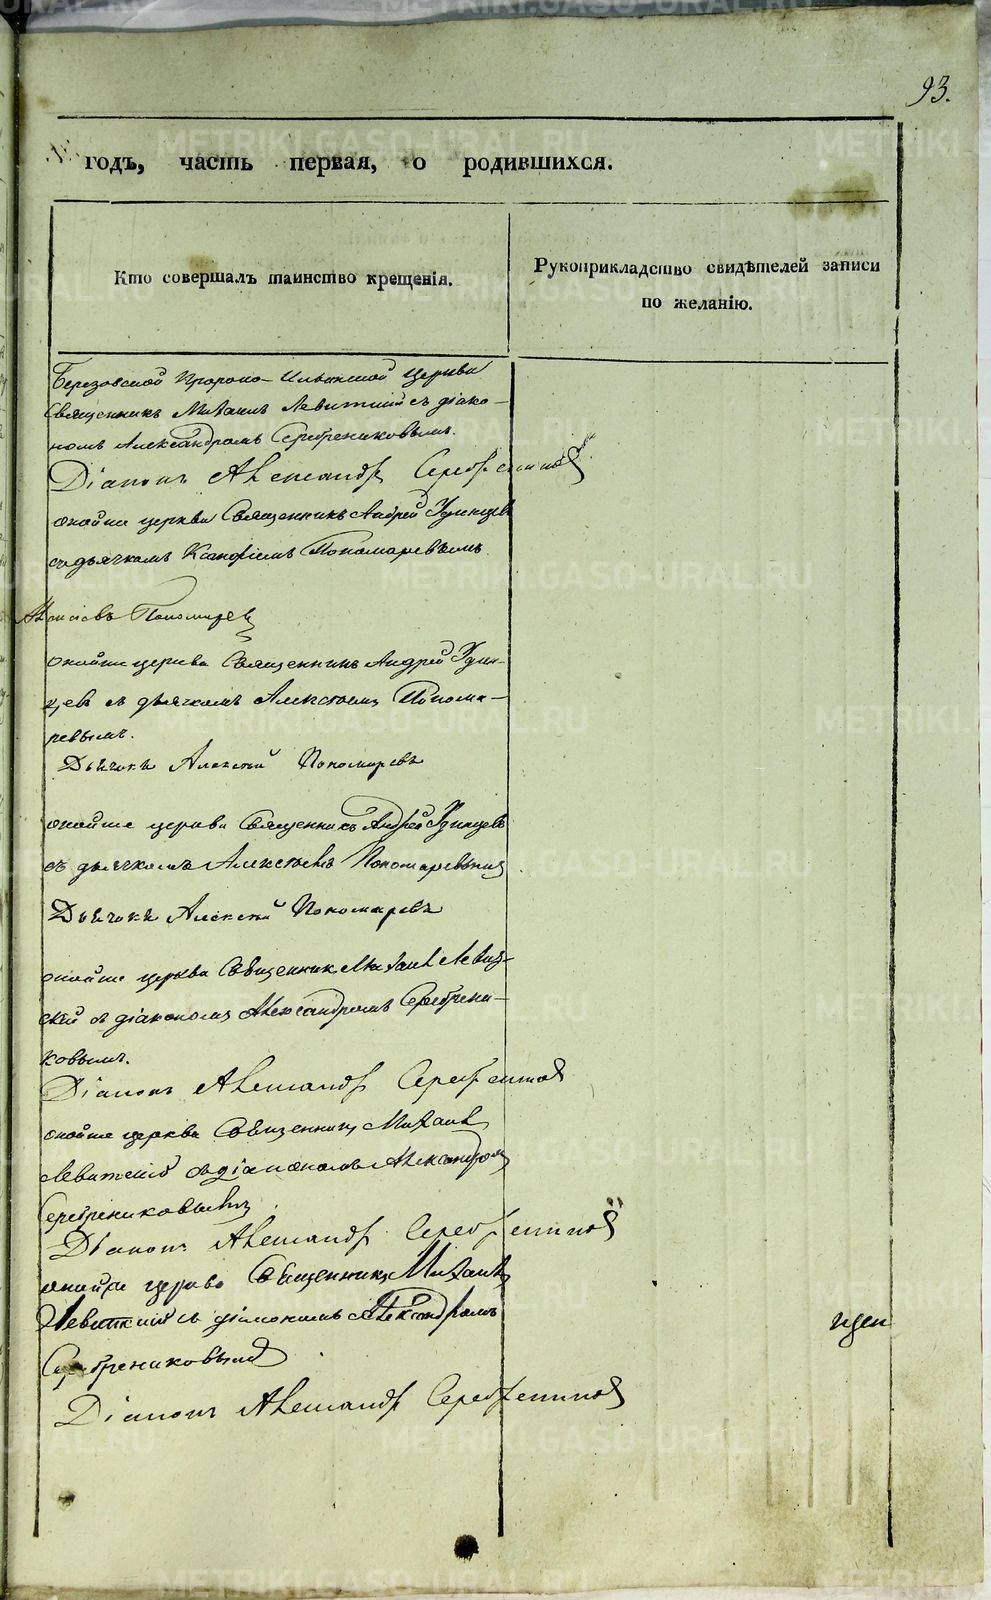 93.
годъ, часть первая, о родившихся.
Кто совершалъ таинство крещенія.
Рукоприкладство свидѣтелей записи
по желанію.
Березовской Пророко-Ильинской церкви
Священникъ Михаилъ Левитскій съ діако-
номъ Александромъ Серебрениковымъ.
Діаконъ Александръ Серебрениковъ
онойже церкви Священникъ Андрей Удинцевъ
съ дьячкомъ Пономаревымъ
Пономаревъ
онойже церкви Священникъ Андрей Удин-
цевъ съ дьячкомъ Алексѣемъ Понома-
ревымъ.
Дьячекъ Алексѣй Пономаревъ
онойже церкви Священникъ Андрей Удинцевъ
съ дьячкомъ Алексѣемъ Пономаревымъ
Дьячекъ Алексѣй Пономаревъ
онойже церкви Священникъ Михаилъ Левит-
скій съ діакономъ Александромъ Серебрени-
ковымъ.
Діаконъ Александръ Серебрениковъ
онойже церкви Священникъ Михаилъ
Левитскій съ діакономъ Александромъ
Серебрениковымъ.
Діаконъ Александръ Серебрениковъ
онойже церкви Священникъ Михаилъ
Левитскій съ діакономъ Александромъ
Серебрениковымъ
Діаконъ Александръ Серебрениковъ
METRIKI.GASO-URAL.RU